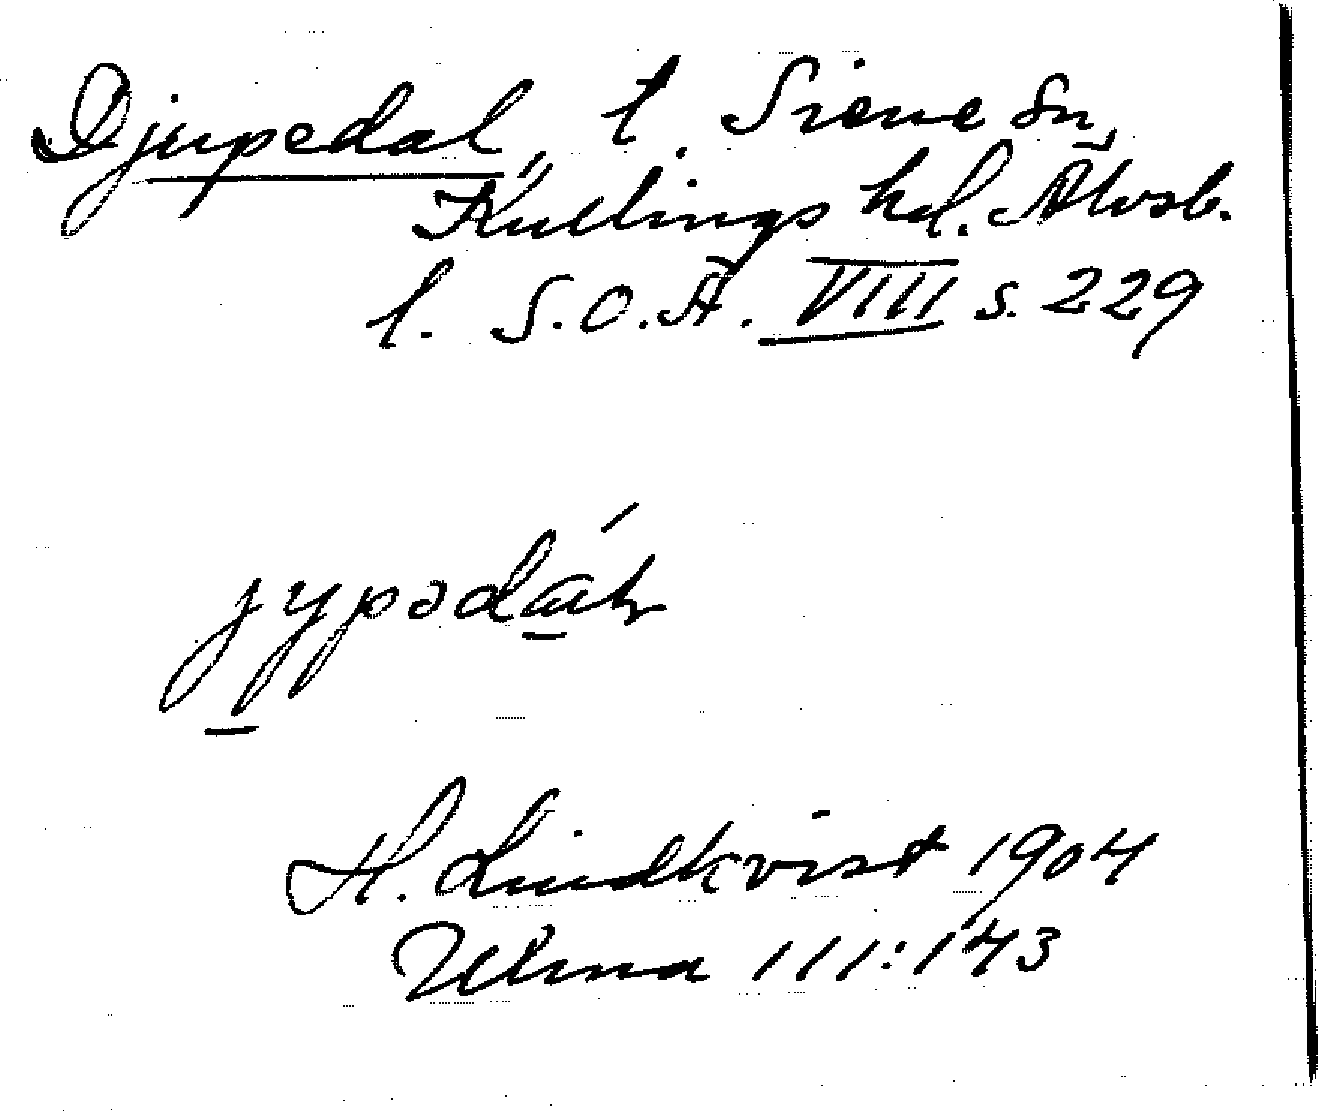 Djupedal, t. Siene sn,
Kullings hd. Älvsb.
l. S.O.Ä. VIII s. 229
H. Lindkvist 1904
Ulma 111:143